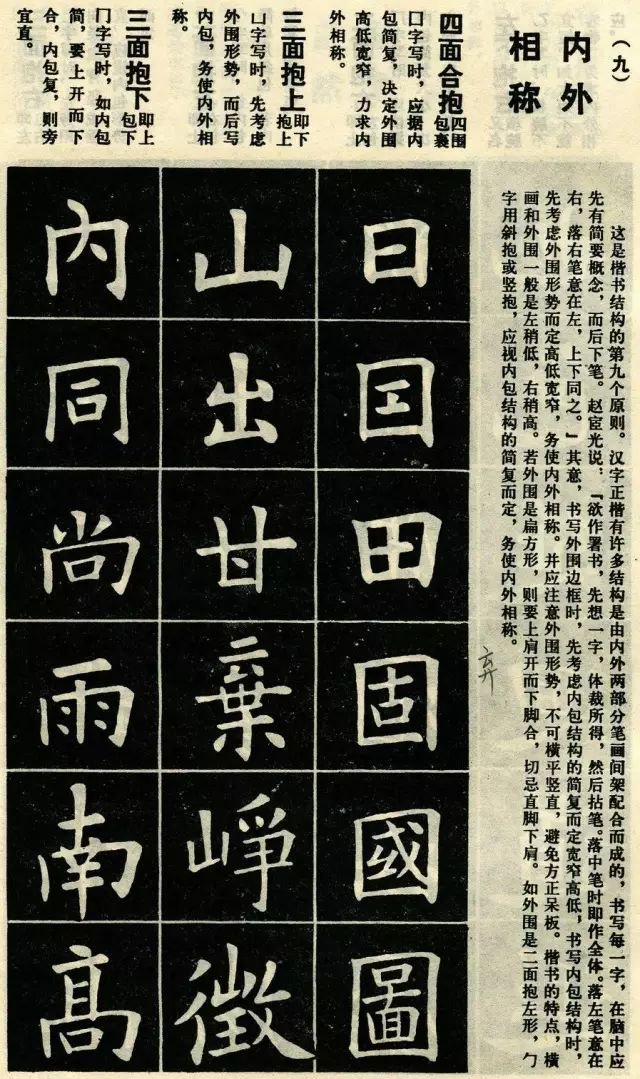 （九）
内外
相称
四面合抱 四围
包裹
囗字写时，应据内
包简复，决定外围
高低宽窄，力求内
外相称。
三面抱上 即下
抱上
凵字写时，先考虑
外围形势，而后写
内包，务使内外相
称。
三面抱下 即上
包下
冂字写时，如内包
简，要上开而下
合，内包复，则旁
宜直。
这是楷书结构的第九个原则。汉字正楷有许多结构是由内外两部分笔画间架配合而成的，书写每一字，在脑中应
先有简要概念，而后下笔。赵宧光说，『欲作署书，先想一字，体裁所得，然后拈笔。落中笔时即作全体。落左笔意在
右，落右笔意在左，上下同之。』其意，书写外围边框时，先考虑内包结构的简复而定宽窄高低，书写内包结构时，
先考虑外围形势而定高低宽窄，务使内外相称。并应注意外围形势，不可横平竖直，避免方正呆板。楷书的特点，横
画和外围一般是左稍低，右稍高。若外围是扁方形，则要上肩开而下脚合，切忌直脚下肩。如外围是二面抱左形，勹
字用斜抱或竖抱，应视内包结构的简复而定，务使内外相称。
弃
日国田固國圖
山出甘棄崢徵
內同尚雨南髙